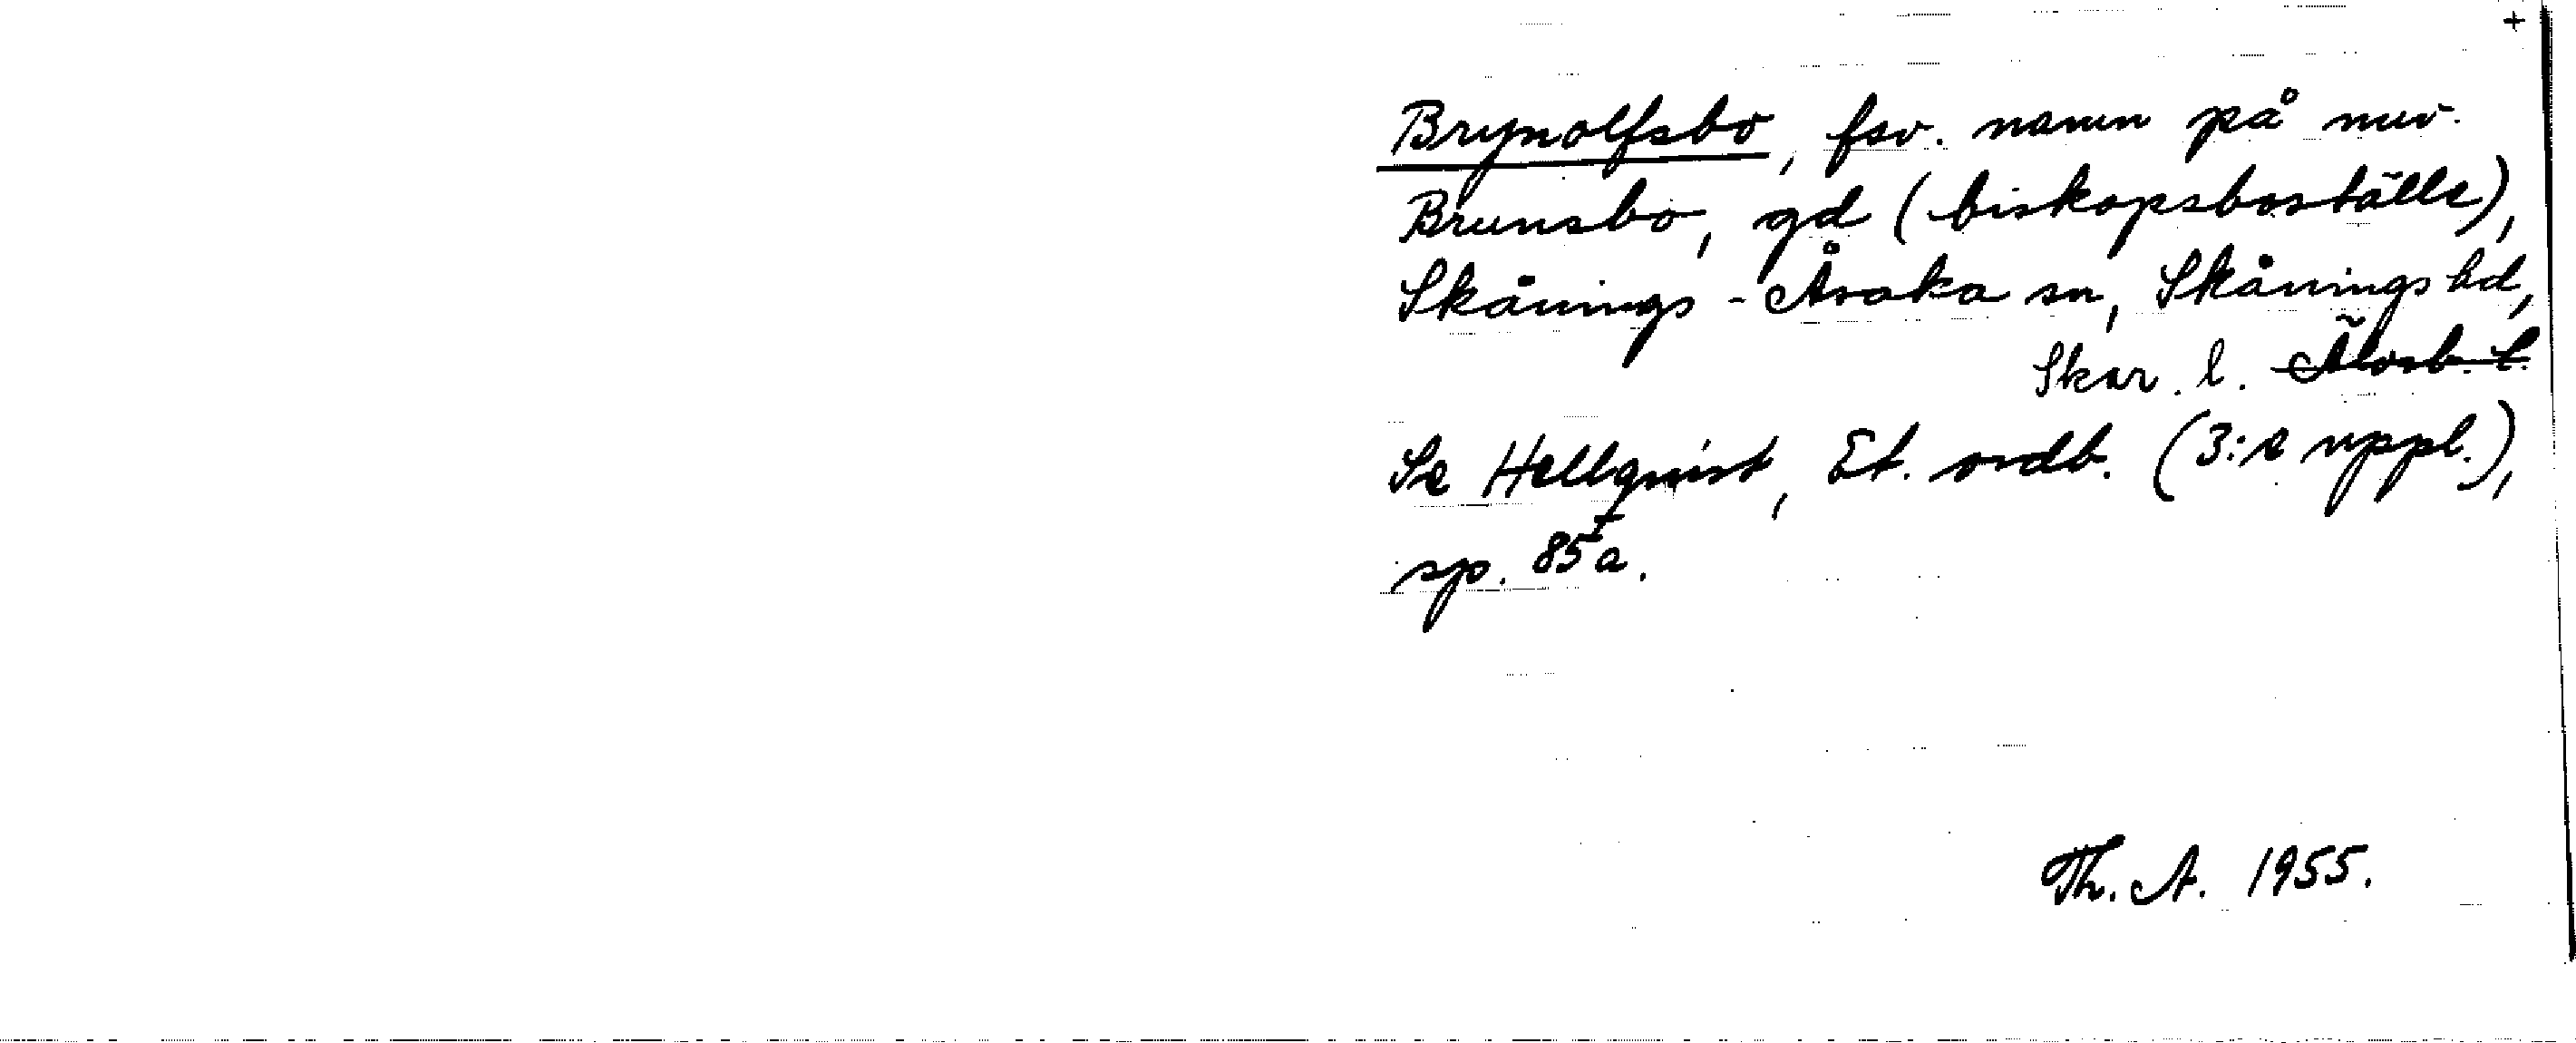 +
Brynolfsbo, fsv. namn på nuv.
Brunsbo, gd (biskopsboställe),
Skånings-Åsaka sn, Skånings hd,
Skar. l. Älvsb. l.
Se Hellquist, Et. ordb. (3:e uppl.),
sp. 85 a.
Th. A. 1955.